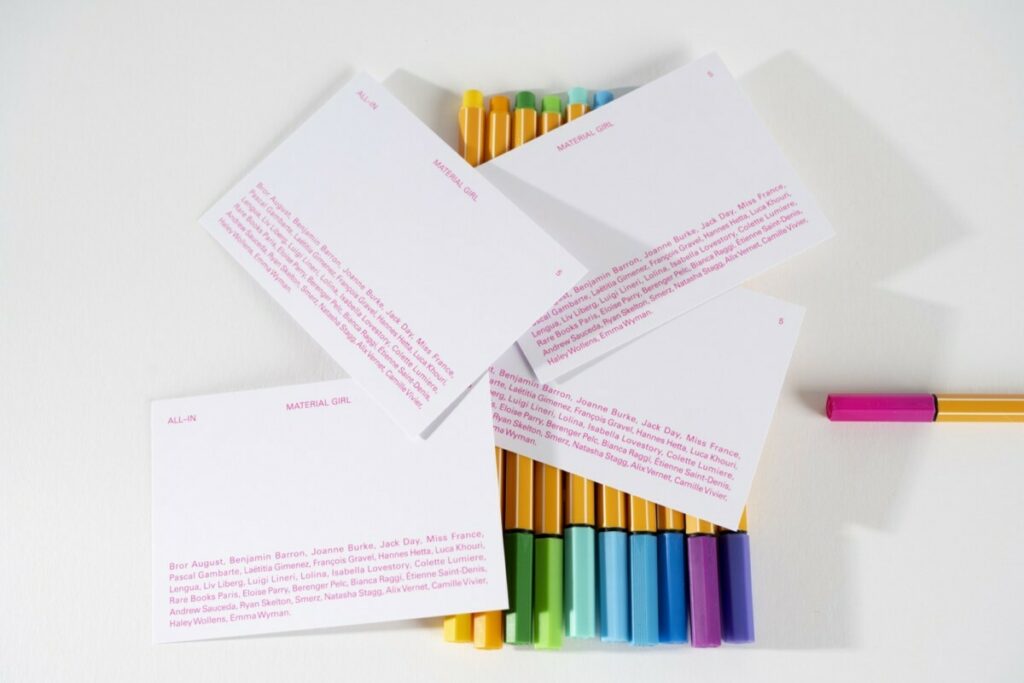 ALL–IN
MATERIAL GIRL
5
Bror August, Benjamin Barron, Joanne Burke, Jack Day, Miss France,
Pascal Gambarte, Laëtitia Gimenez, François Gravel, Hannes Hetta, Luca Khouri,
Lengua, Liv Liberg, Luigi Lineri, Lolina, Isabella Lovestory, Colette Lumiere,
Rare Books Paris, Eloise Parry, Berenger Pelc, Bianca Raggi, Étienne Saint-Denis,
Andrew Sauceda, Ryan Skelton, Smerz, Natasha Stagg, Alix Vernet, Camille Vivier,
Haley Wollens, Emma Wyman.
MATERIAL GIRL
5
August, Benjamin Barron, Joanne Burke, Jack Day, Miss France,
Pascal Gambarte, Laëtitia Gimenez, François Gravel, Hannes Hetta, Luca Khouri,
Lengua, Liv Liberg, Luigi Lineri, Lolina, Isabella Lovestory, Colette Lumiere,
Rare Books Paris, Eloise Parry, Berenger Pelc, Bianca Raggi, Étienne Saint-Denis,
Andrew Sauceda, Ryan Skelton, Smerz, Natasha Stagg, Alix Vernet, Camille Vivier,
Haley Wollens, Emma Wyman.
5
Benjamin Barron, Joanne Burke, Jack Day, Miss France,
Laëtitia Gimenez, François Gravel, Hannes Hetta, Luca Khouri,
Liberg, Luigi Lineri, Lolina, Isabella Lovestory, Colette Lumiere,
Eloise Parry, Berenger Pelc, Bianca Raggi, Étienne Saint-Denis,
Ryan Skelton, Smerz, Natasha Stagg, Alix Vernet, Camille Vivier,
Emma Wyman.
ALL–IN
MATERIAL GIRL
Bror August, Benjamin Barron, Joanne Burke, Jack Day, Miss France,
Pascal Gambarte, Laëtitia Gimenez, François Gravel, Hannes Hetta, Luca Khouri,
Lengua, Liv Liberg, Luigi Lineri, Lolina, Isabella Lovestory, Colette Lumiere,
Rare Books Paris, Eloise Parry, Berenger Pelc, Bianca Raggi, Étienne Saint-Denis,
Andrew Sauceda, Ryan Skelton, Smerz, Natasha Stagg, Alix Vernet, Camille Vivier,
Haley Wollens, Emma Wyman.